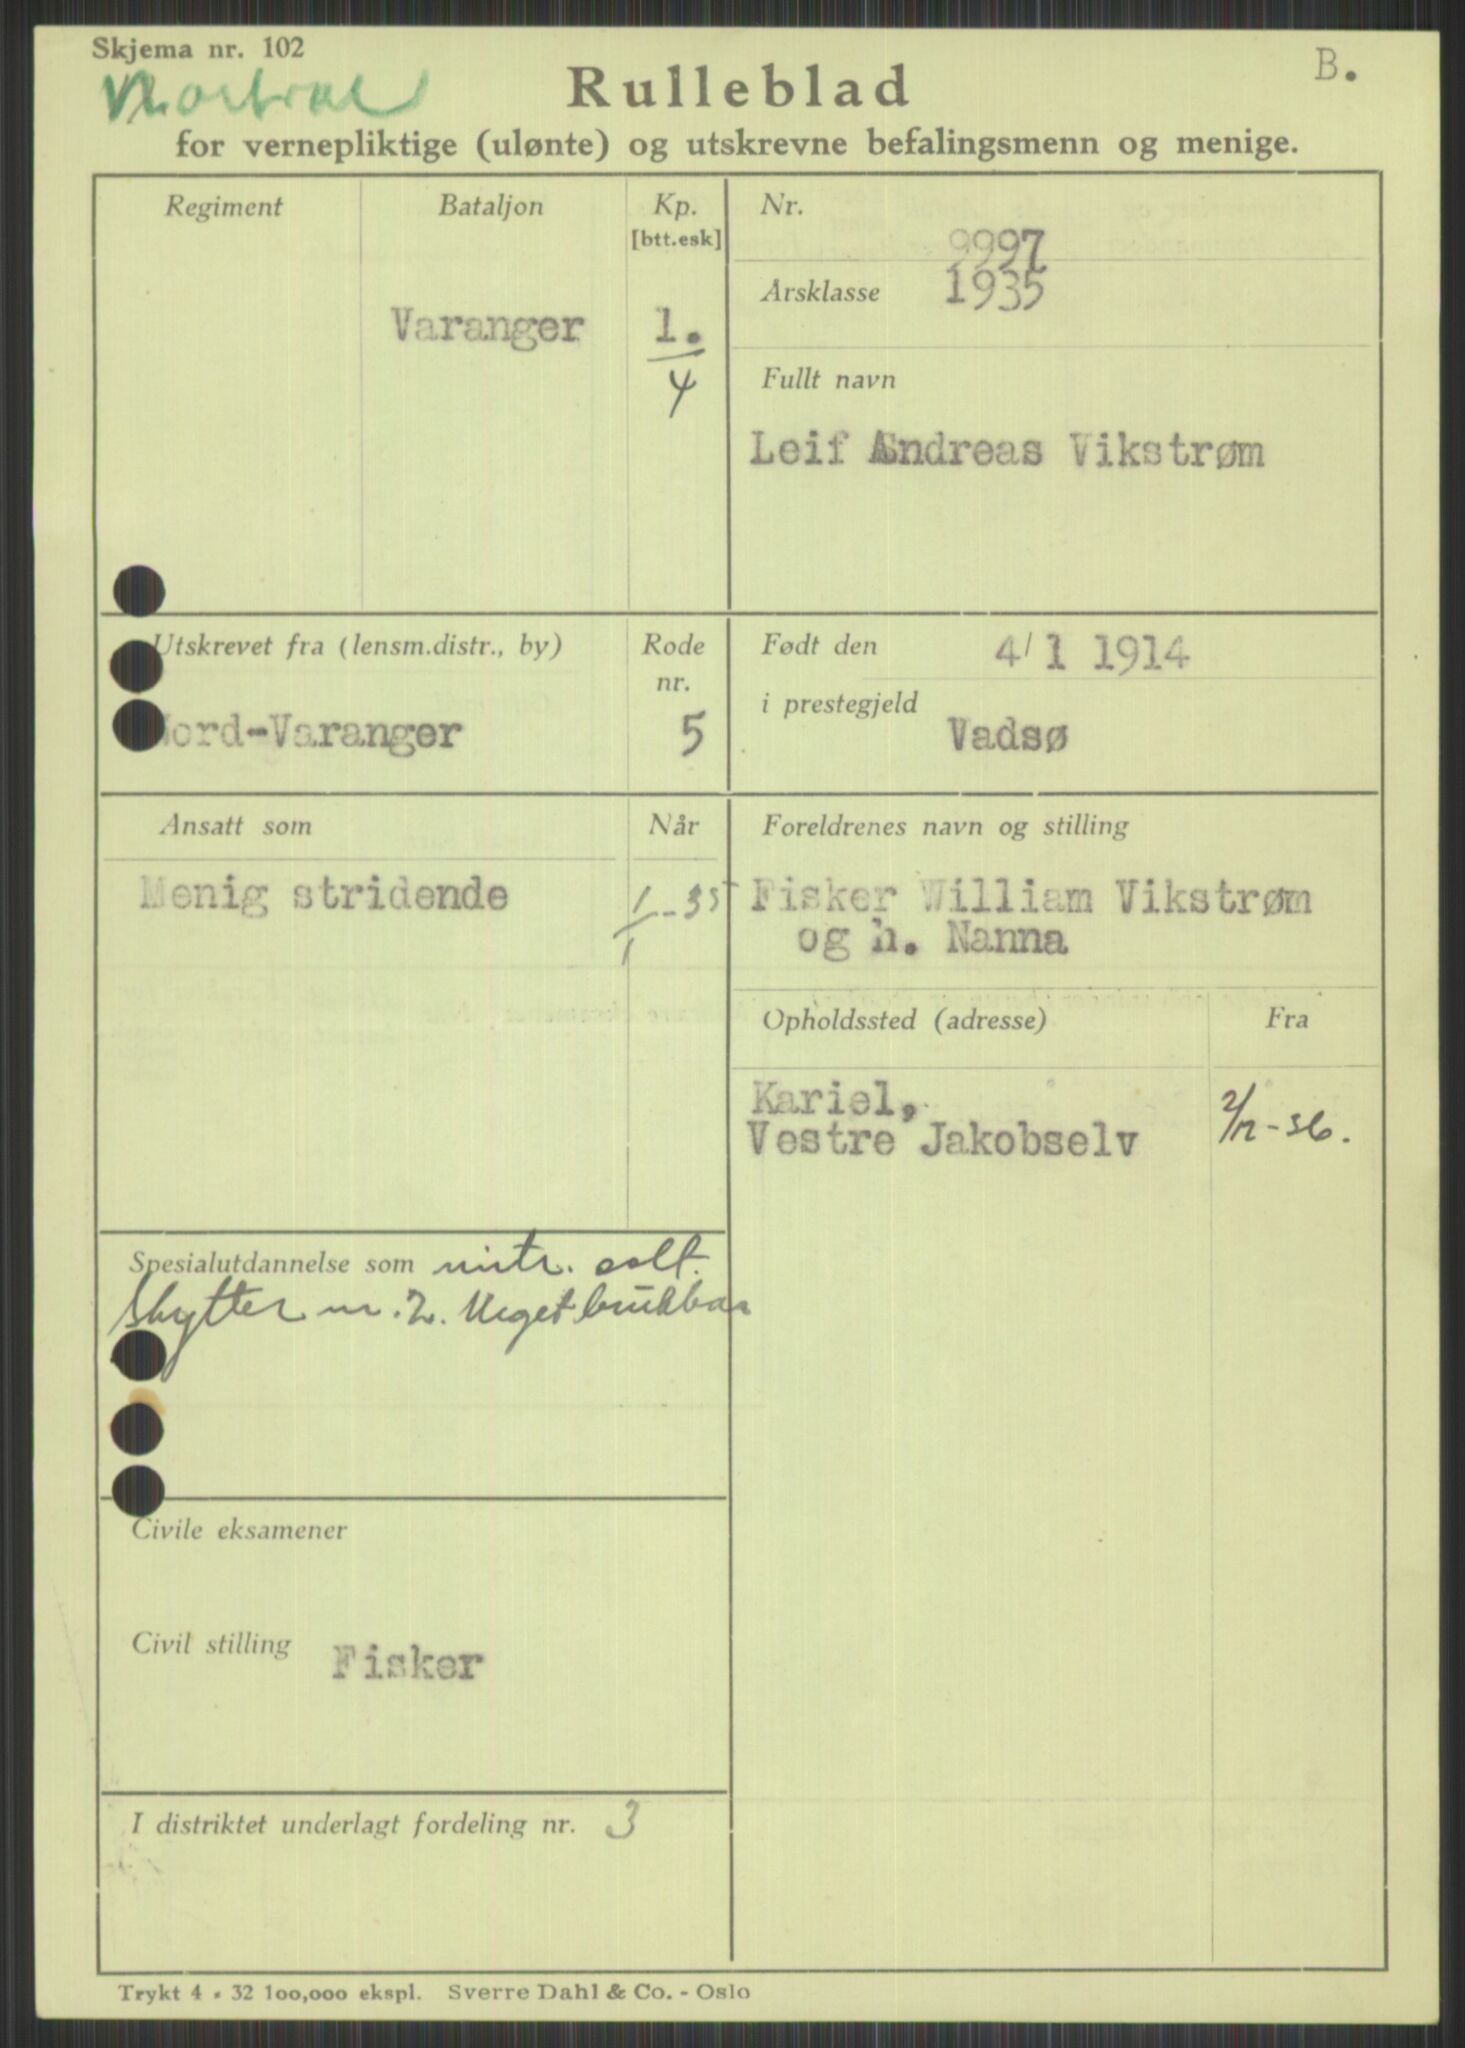 Skjema nr. 102
B.
Rulleblad
for vernepliktige (ulønte) og utskrevne befalingsmenn og menige.
Regiment
Bataljon
Varanger
Kp.
[btt.esk]
1.
4
Nr.
9997
Årsklasse
1935
Fullt navn
Leif Andreas Vikstrøm
Utskrevet fra (lensm.distr., by)
Nord-Varanger
Rode
nr.
5
Født den 4/1 1914
i prestegjeld
Vadsø
Ansatt som
Når
Menig stridende
1/1-35
Foreldrenes navn og stilling
Fisker William Vikstrøm
og h. Nanna
Opholdssted (adresse)
Fra
Kariel,
Vestre Jakobselv
2/12-36.
Spesialutdannelse som mitr.
Skytter nr. 2. Meget brukbar
Civile eksamener
Civil stilling Fisker
I distriktet underlagt fordeling nr. 3
Trykt 4 - 32 100,000 ekspl. Sverre Dahl & Co. - Oslo